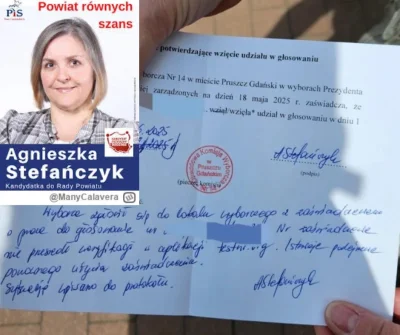 PiS
Powiat równych
szans
Agnieszka
Stefańczyk
Kandydatka do Rady Powiatu
@ManyCalavera
potwierdzające wzięcie udziału w głosowaniu
borcza Nr 14 w mieście Pruszcz Gdański w wyborach Prezydenta
zarządzonych na dzień 18 maja 2025 r. zaświadcza, że
wziął/wzięła* udział w głosowaniu w dniu 1
2025
AStefańczyk
(pieczęć komisji)
(podpis)
Wyborca zgłosił się do lokalu wyborczego z zaświadczeniem
o prawie do głosowania nr Nr zaświadczenia
nie przeszedł weryfikacji w aplikacji Istnieje podejrzenie
ponownego użycia zaświadczenia.
Sytuację wpisano do protokołu.
AStefańczyk